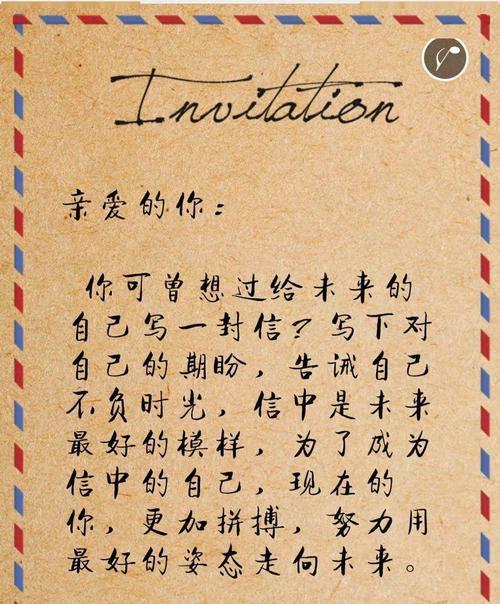 Invitation
亲爱的你：
你可曾想过给未来的
自己写一封信？写下对
自己的期盼，告诫自己
不负时光，信中是未来
最好的模样，为了成为
信中的自己，现在的
你，更加拼搏，努力用
最好的姿态走向未来。